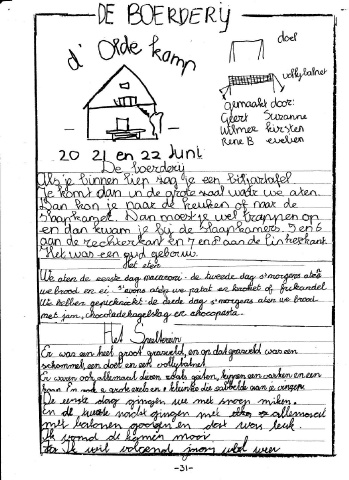 DE BOERDERIJ
d' Olde kamp
doel
vollybalnet
gemaakt door:
Geert Suzanne
Wilmer kirsten
Rene B evelien
20 21 en 22 Juni
De boerderij
Als je binnen liep zag je een biljartafel
Je komt dan in de grote zaal waar we aten.
Dan kon je naar de keuken of naar de
slaapkamer. Dan moest je wel trappen op
en dan kwam je bij de slaapkamers. 5 en 6
aan de rechterkant en 7 en 8 aan de linkerkant
Het was een oud gebouw.
Het eten
We aten de eerste dag macaroni. de tweede dag s'morgens aten
we brood en ei. s'avons aten we patat en kroket of frikandel
We hebben gepicknickt. de derde dag s'morgens aten we brood
met jam, chocoladehagelslag en chocopasta.
Het Speelterein
Er was een heel groot grasveld, en op dat grasveld was een
schommel, een doel en een vollybalnet
Er waren ook allemaal dieren zoals geiten, kippen een varken en een
De eerste dag gingen we met snoep
en de tweede nacht gingen met allemaal
met balonen gooien en dat was leuk.
Ik vond de kamer mooi
Ik wil volgend jaar wel weer
-31-